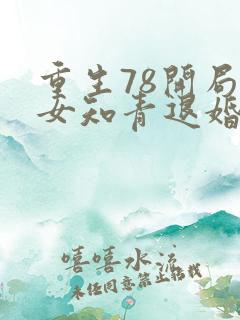 重生78開局
女知青退婚
嘻嘻水流
未经同意禁止转载